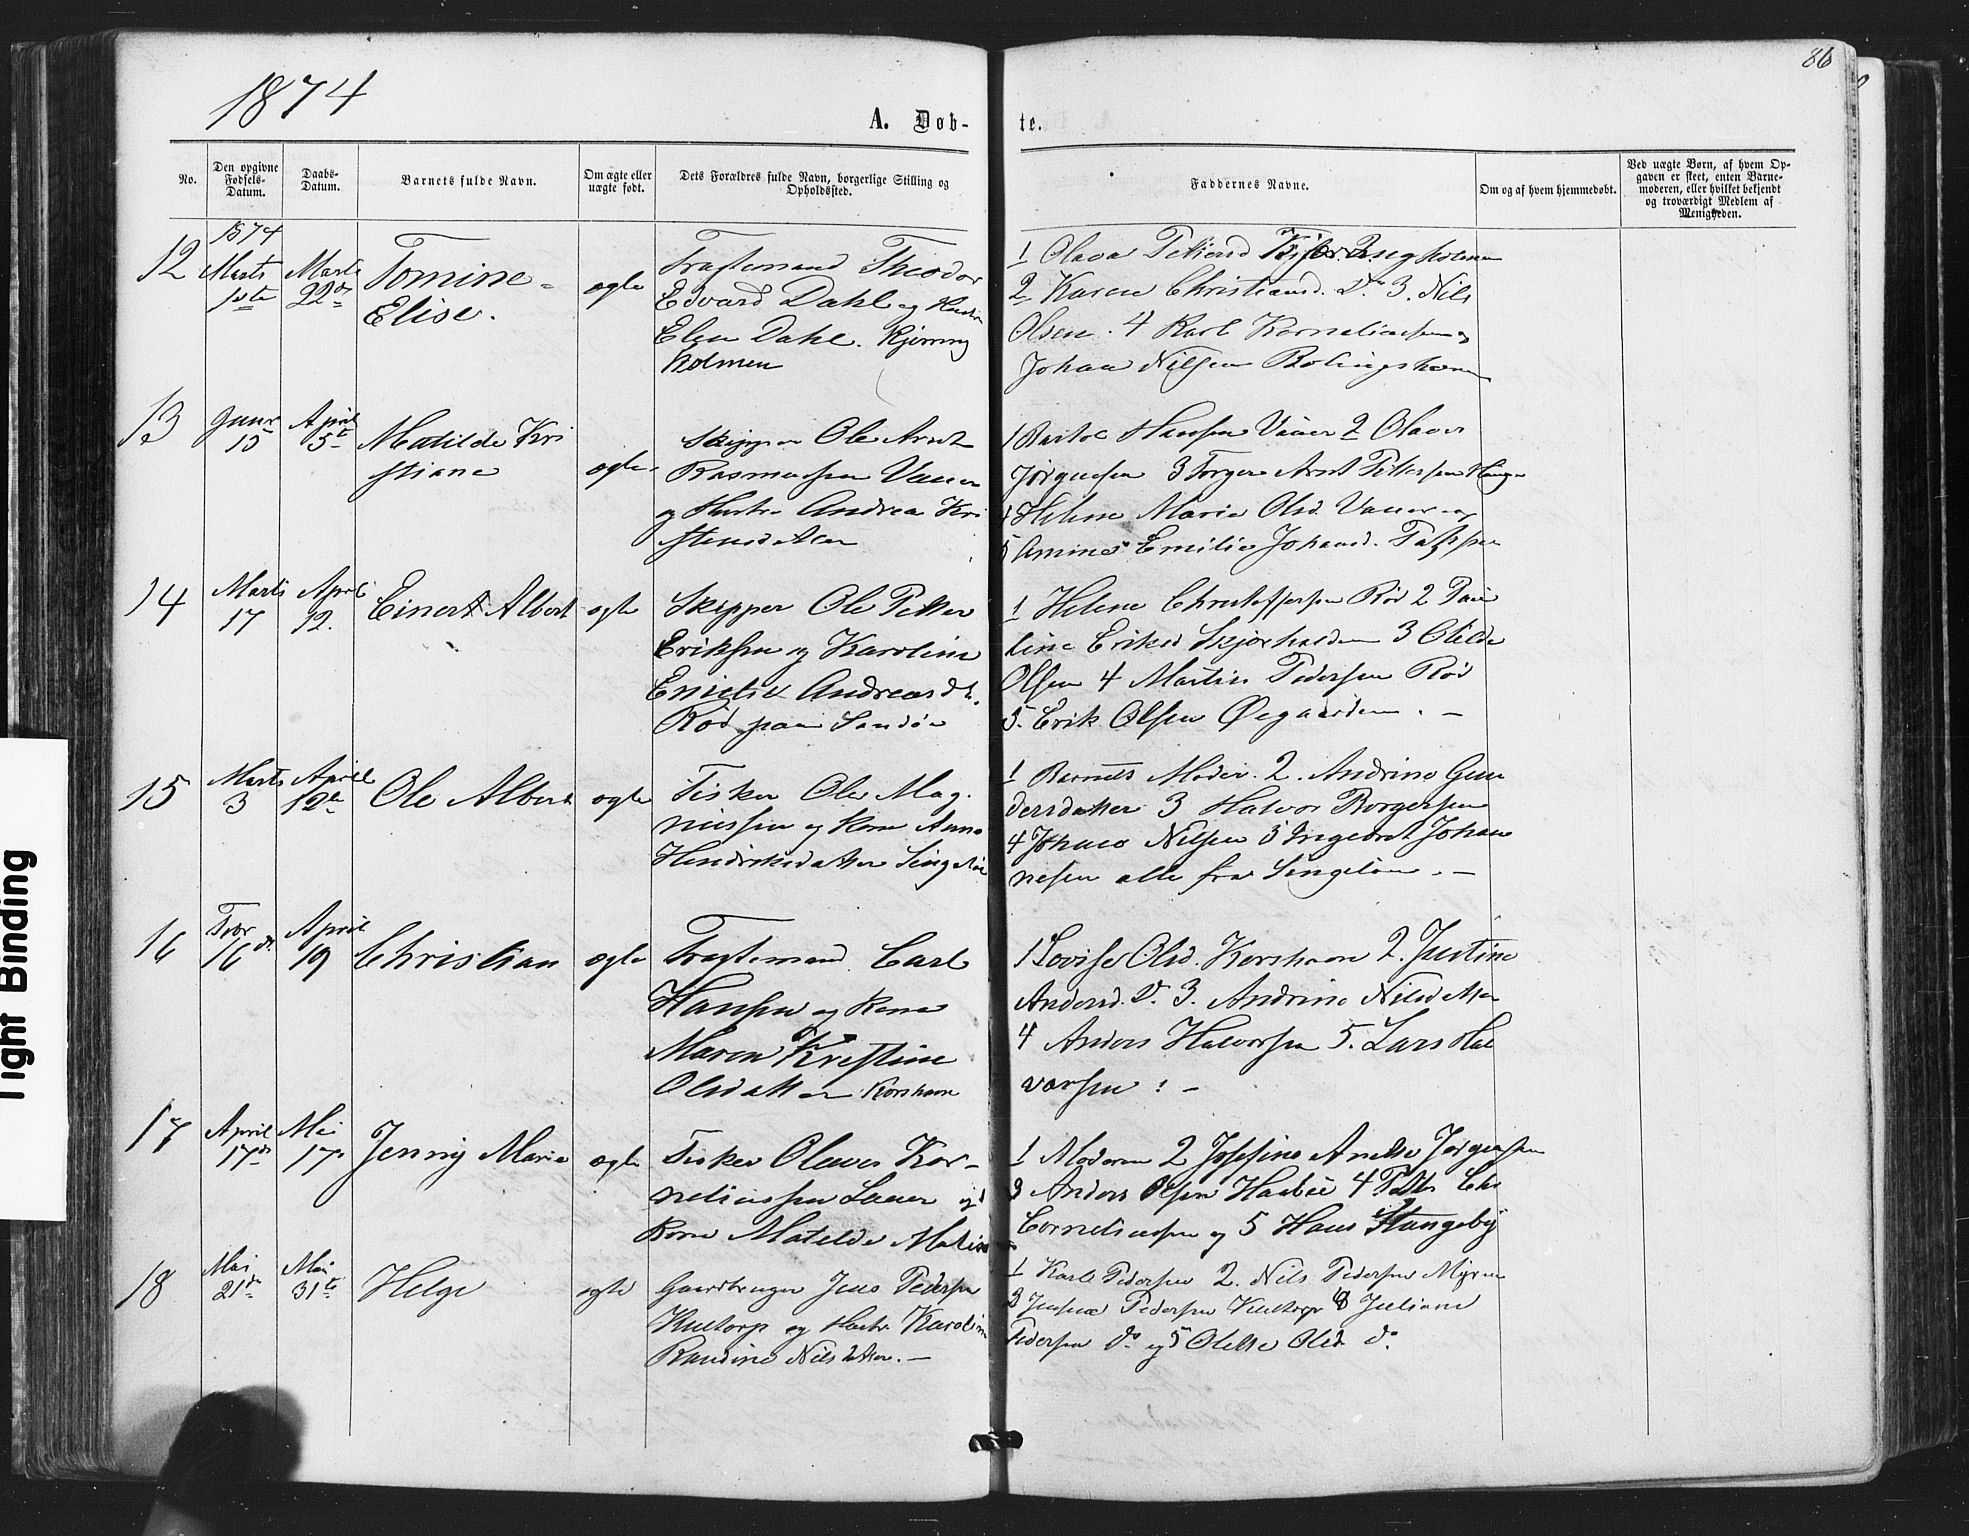 1874
86
A. Døb-
te.
No.
Den opgivne Fødsels-Datum.
Daabs-Datum.
Barnets fulde Navn.
Om ægte eller uægte født.
Dets Forældres fulde Navn, borgerlige Stilling og Opholdssted.
Faddernes Navne.
Om og af hvem hjemmedøbt.
Ved uægte Børn, af hvem Op-
gaven er skeet, enten Barne-
moderen, eller hvilket bekjendt
og troværdigt Medlem af
Menigheden.
1874
12 Marts 1ste Marts 22de Tomine
Elise. ægte
Fragtemand Theodor
Edvard Dahl og Hustru
Elen Dahl. Kjerring
holmen
1 Olava
2 Karen Christiansd. Do 3. Nils
Olsen. 4 Karl Korneliussen
Johan Nilsen
13 Januar 15 April 5te Matilde Kri
stiane ægte
Skipper Ole Arnt
Rasmussen Vauer
og Hustru Andrea Kri
stensdatter
1 Hansen Vauer 2 Olava
Jørgensen 3 Torger Arnt Pettersen
4 Helene Marie Olsd. Vauer og
5 Amine Emilie Johansd.
14 Marts 17 April 12. Einert Albert ægte
Skipper Ole Petter
Eriksen og Karoline
Emilie Andreasdt.
Rød paa Sandøe
1 Helene Christoffersen Rød 2 Pau
line Eriksd Skjærhalden 3 Olilde
Olsen 4 Martin Pedersen Rød
5. Erik Olsen Øegaarden. –
15 Marts 3 April 12te Ole Albert ægte
Fisker Ole Mag
nussen og Kone Anne
Hendriksdatter Singeløe
1 Barnets Moder. 2. Andrine Gun
dersdatter 3 Halvor Borgersen
4 Johan Nilsen 5 Ingebret Johan
nesen alle fra Singeløen. –
16 Febr 16de April 19 Christian ægte
Fragtemand Carl
Hansen og Kone
Maren Kristine
Olsdatter Korshavn
1 Lovise Olsd. Korshavn 2. Justine
Andersd. Do. 3. Andrine Nilsdatter
4 Anders Halvorsen 5. Lars Hal
vorsen : –
17 April 17de Mai 17de Jenny Marie ægte
Fisker Olaves Kor-
neliussen Lauer og
Kone Matilde
1 Moderen 2 Josefine Anette Jørgensen
3 Anders Olsen 4 Petter
Corneliussen og 5 Hans Stangeby
18 Mai 21de Mai 31te Helge ægte
Gaardbruger Jens Pedersen
Hustorp og Hustru Karoline
Randine Nilsdatter. –
1 Karl Pedersen 2. Nils Pedersen Myren
3 Pedersen 4 Juliane
Pedersen Do og 5 Olette Olsd. do
Tight Binding